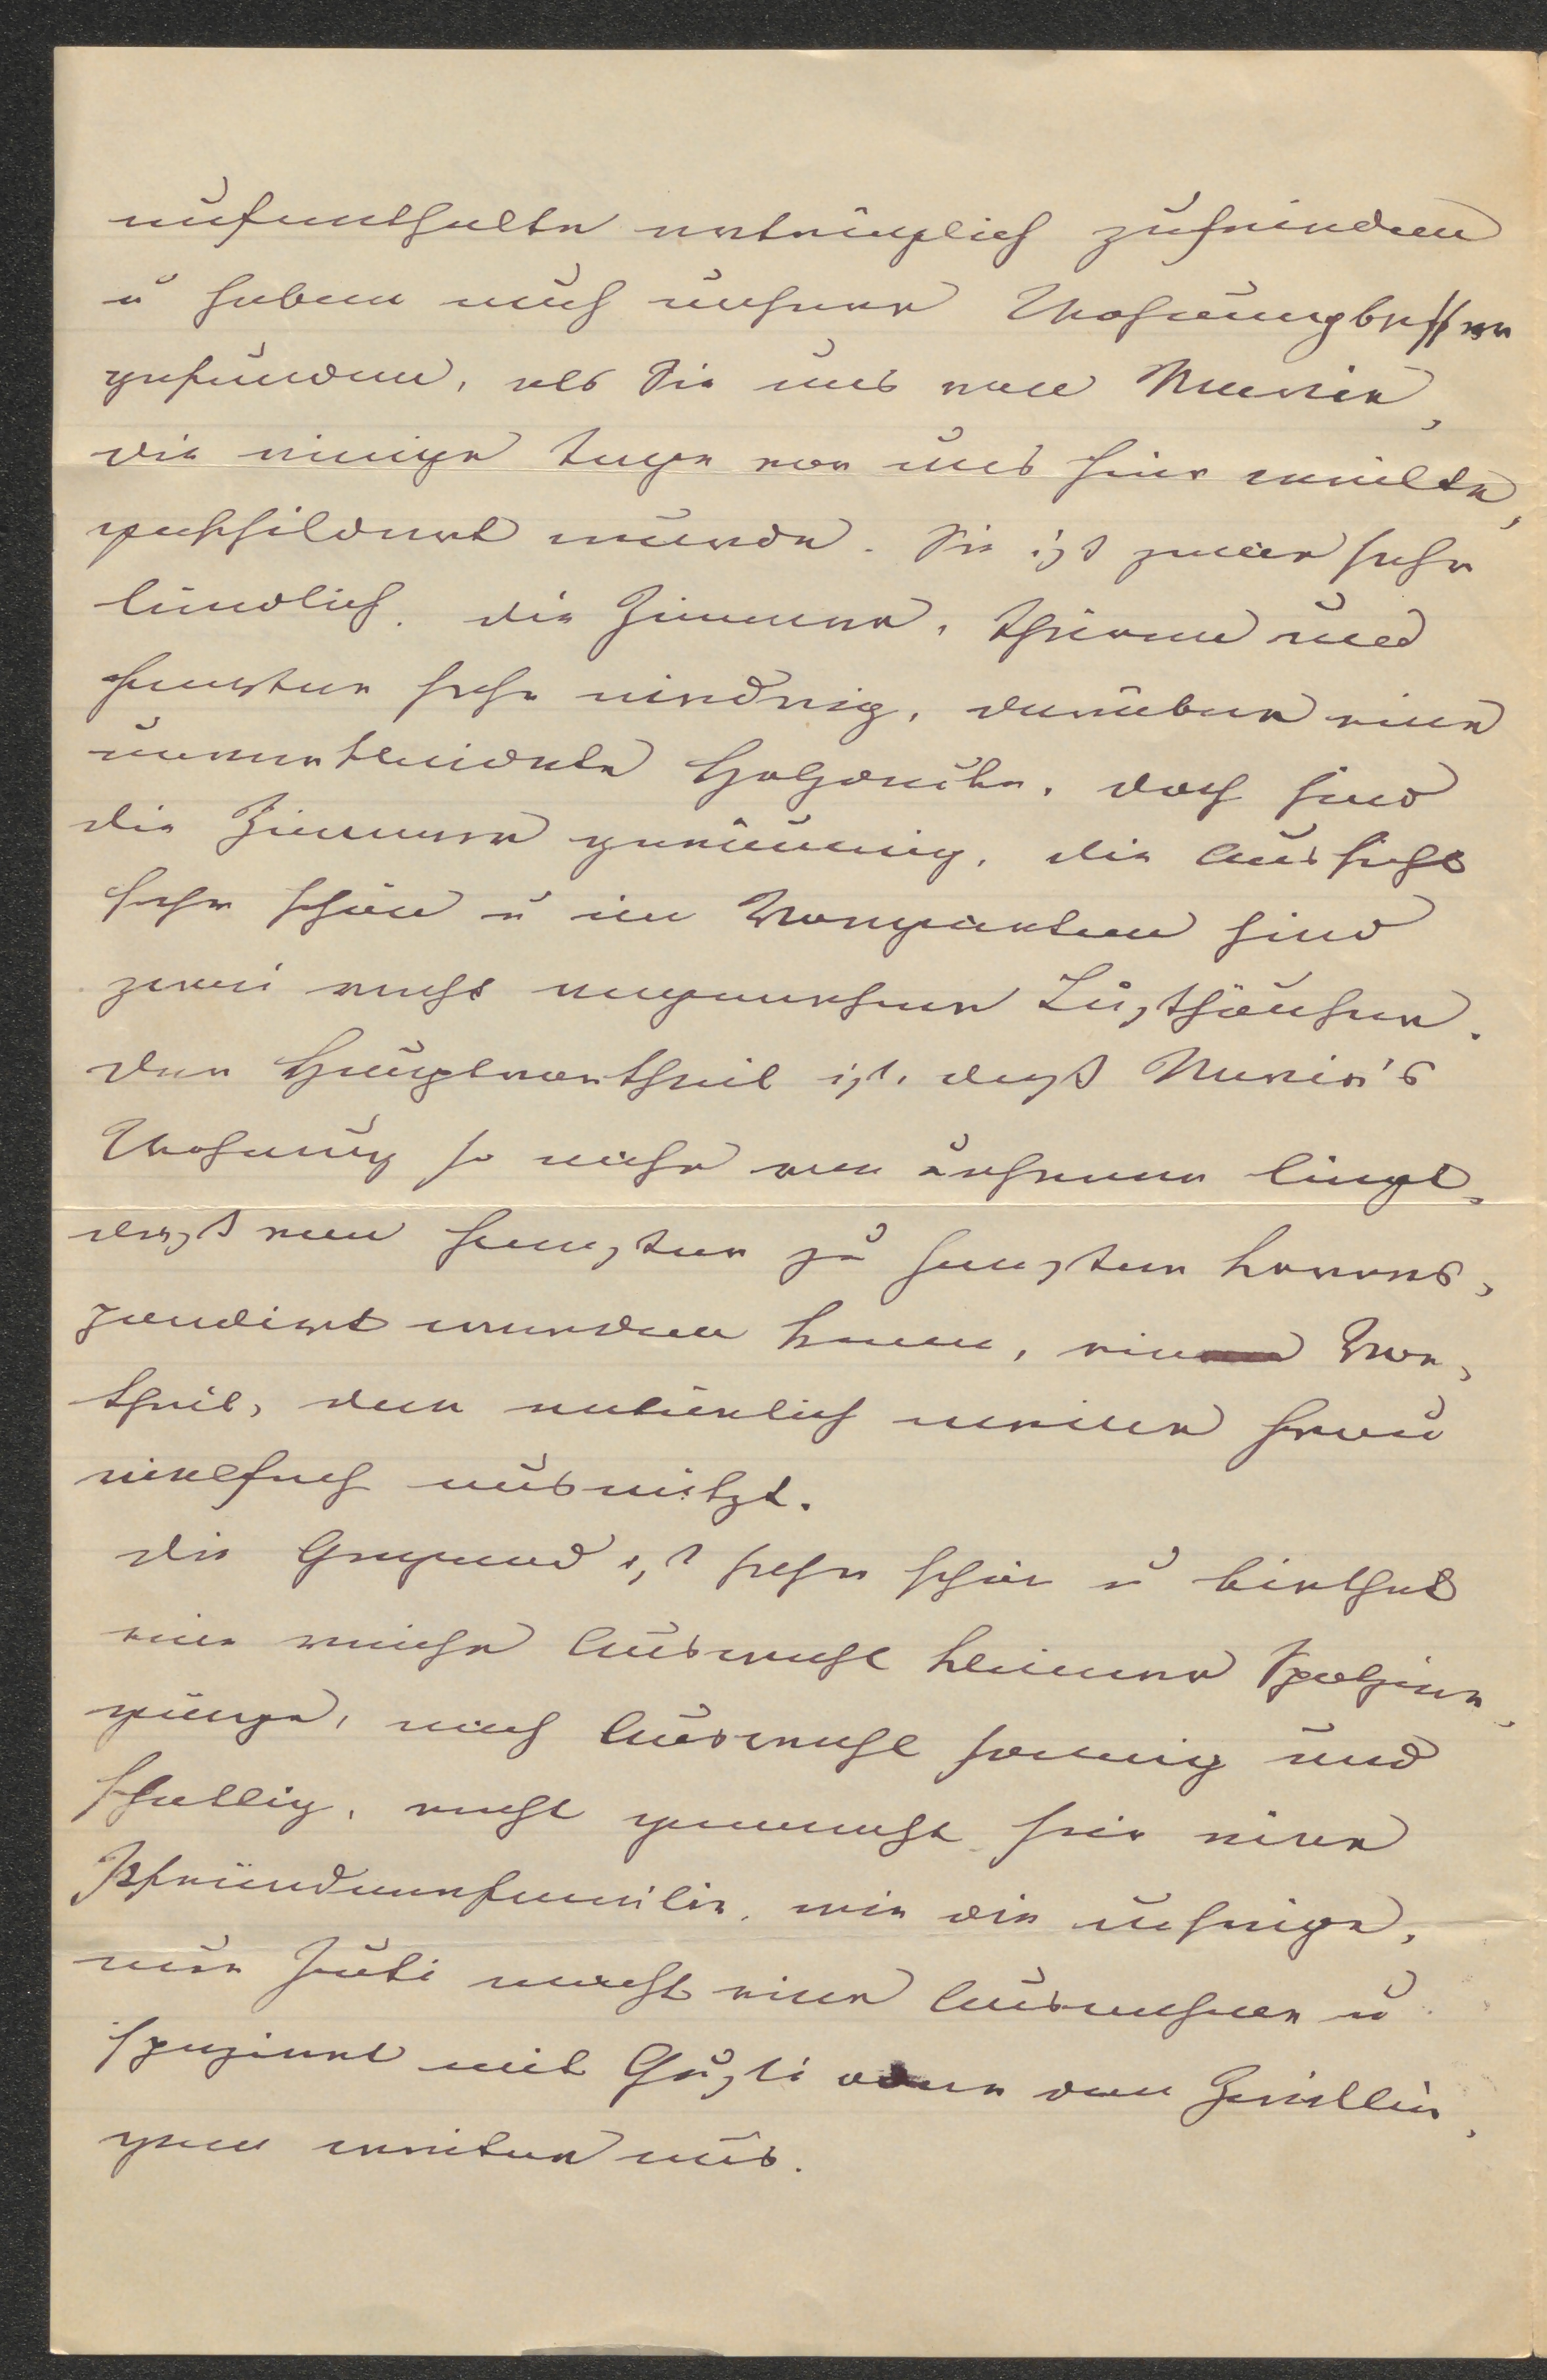 aufenthalte verträglich zufrieden
u haben auch unsere Wohnung besser
gefunden, als Sie uns von Marie,
die einige Tage vor uns hier weilte,
geschildert wurde. Sie ist zwar sehr
ländlich, die Zimmer, Thüren und
Fenster sehr niedrig, darüber eine
unverkleidete Holzdecke, doch sind
die Zimmer geräumig, die Aussicht
sehr schön u im Vorgarten sind
zwei recht angenehme Lusthäuser.
Der Hauptvortheil ist, daß Marie's
Wohnung so nahe von unserer liegt,
daß von Fenster zu Fenster korres-
pondirt werden kann, ein Vor-
theil, den natürlich meine Frau
vielfach ausnützt.
Die Gegend ist sehr schön u biethet
eine reiche Auswahl kleiner Spazier-
gänge, nach Auswahl sonnig und
schattig, recht gemacht für eine
Pfründnerfamilie, wie die unsrige,
nur Juli macht eine Ausnahme u
spaziert mit Gusti oder den Zwillin-
gen weiter aus.